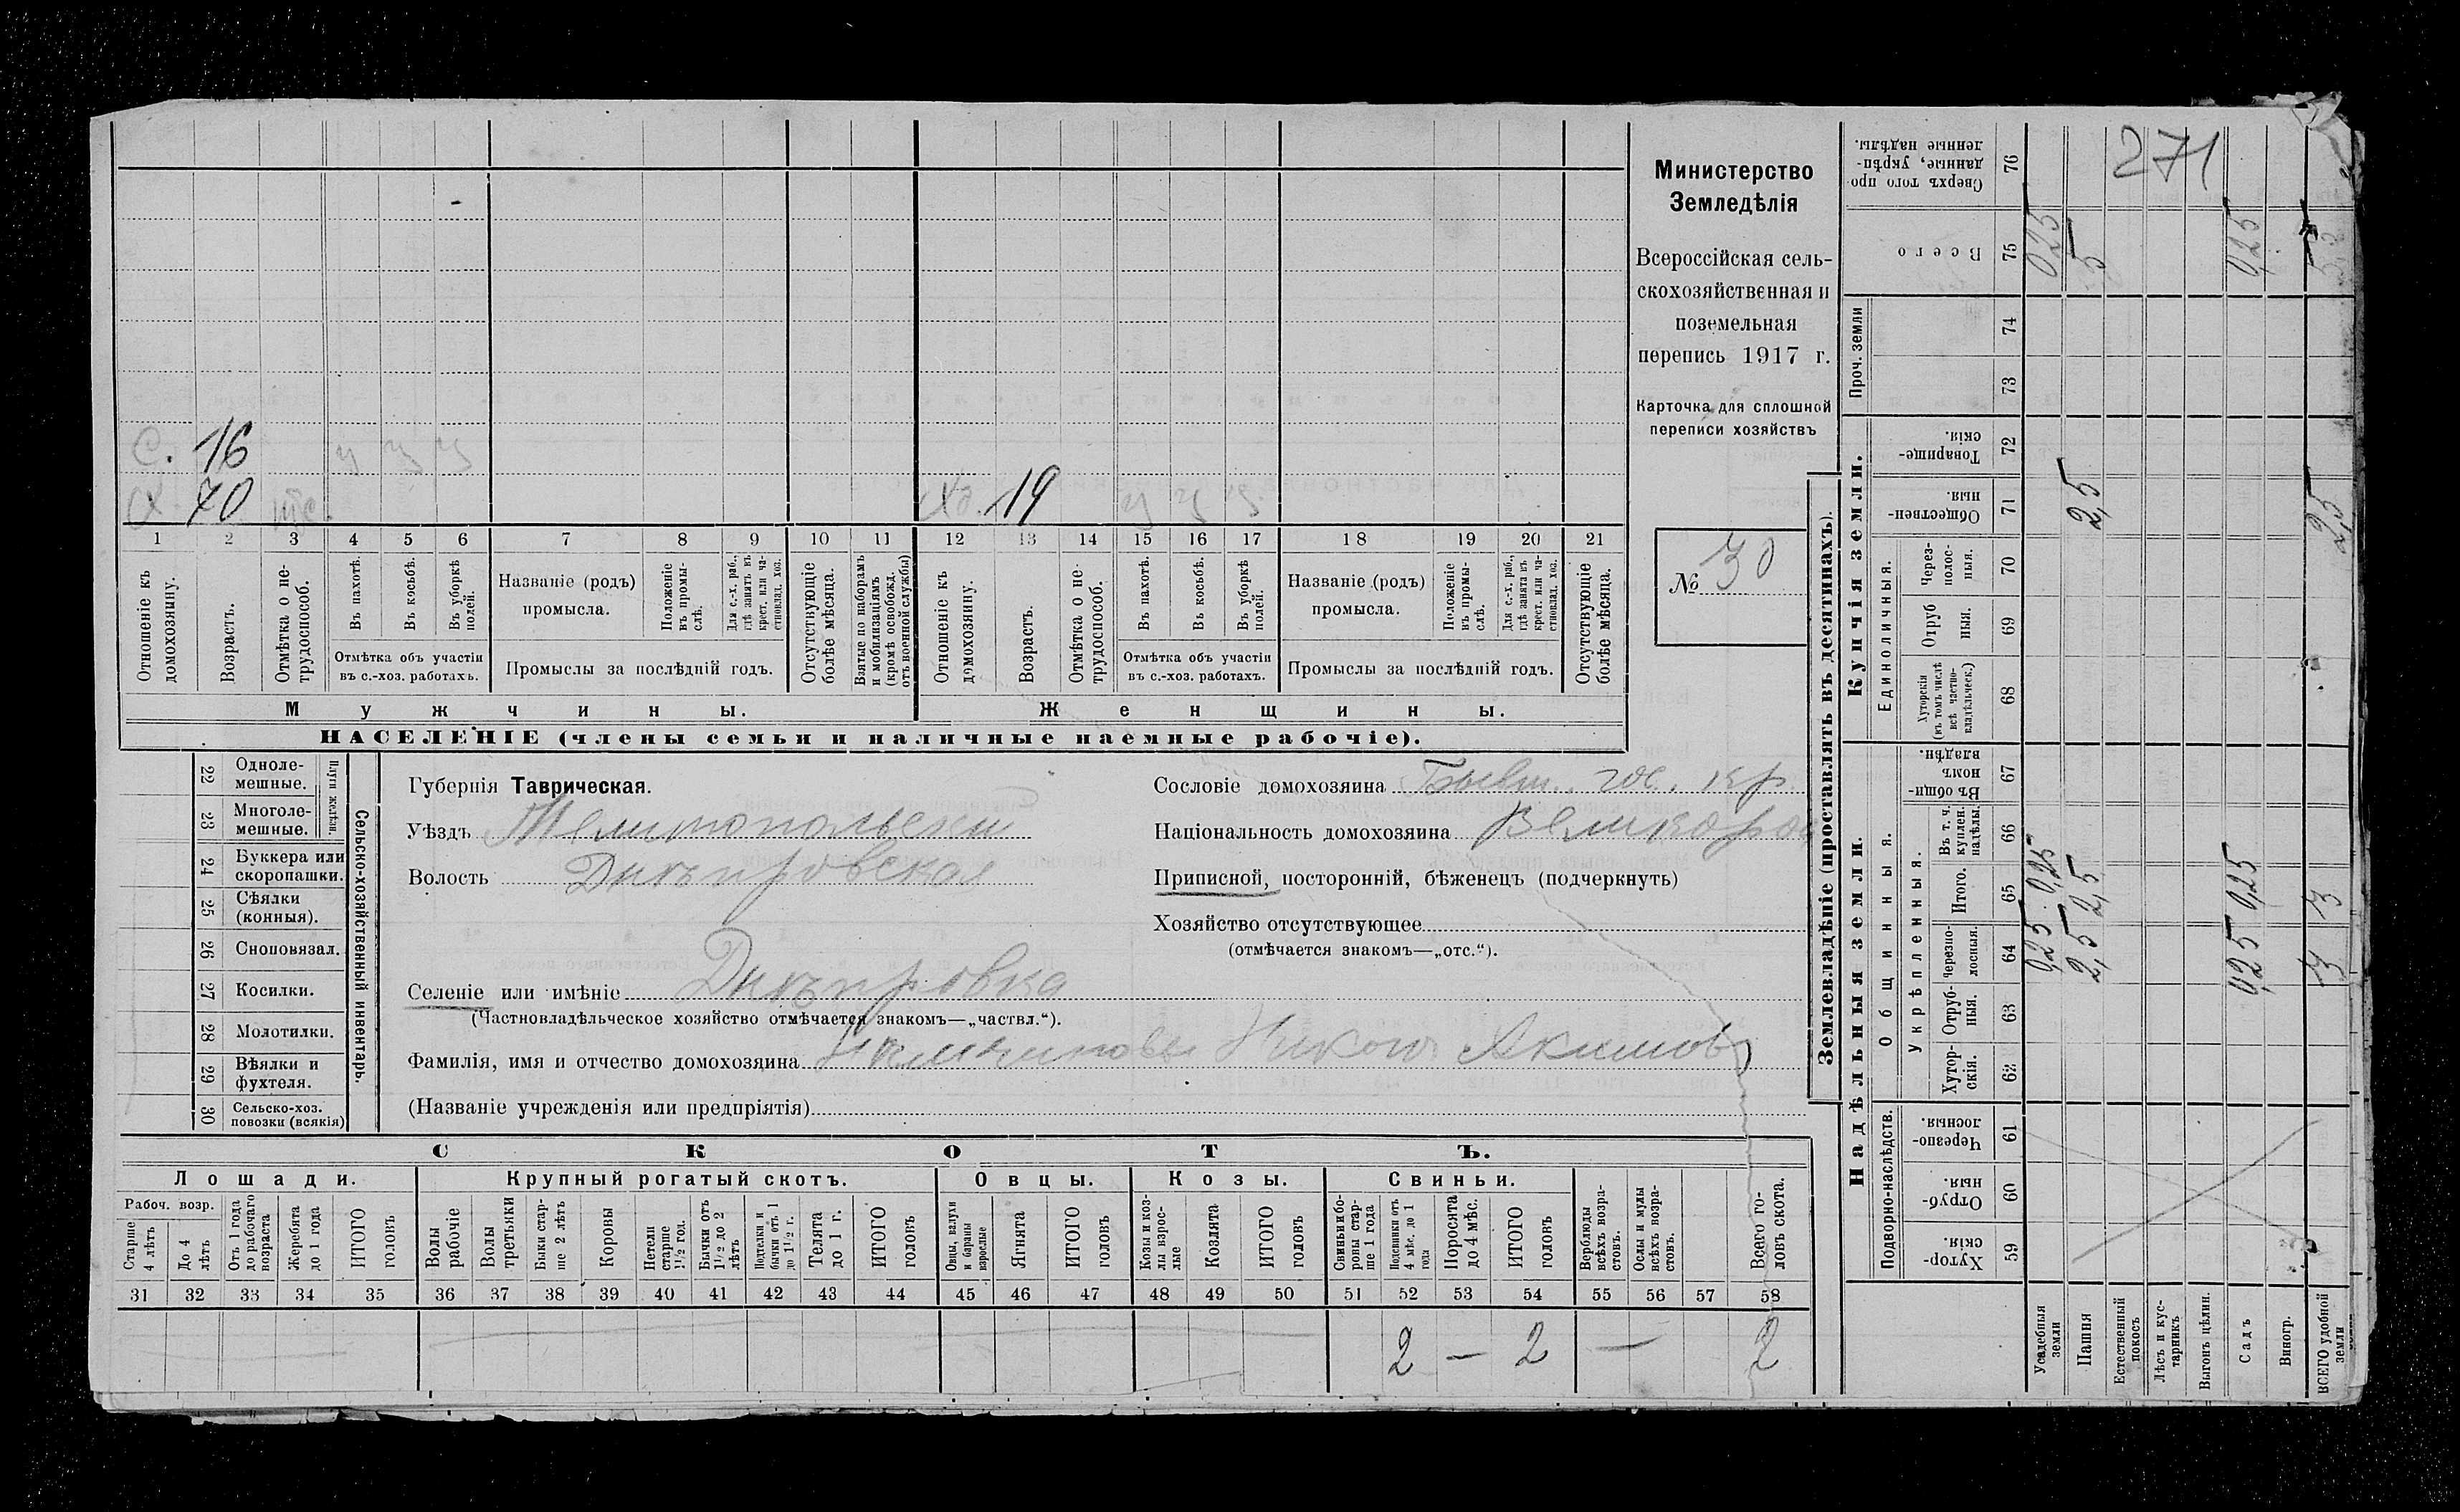 271
С. 16 у у у
Х. 70
Хз. 19 у у у
1 2 3 4 5 6 7 8 9 10 11 12 13 14 15 16 17 18 19 20 21
Отношеніе къ домохозяину.
Возрастъ.
Отмѣтка о нетрудоспособ.
Въ пахотѣ.
Въ косьбѣ.
Въ уборкѣ полей.
Отмѣтка объ участіи въ с.-хоз. работахъ.
Названіе (родъ) промысла.
Положеніе въ промыслѣ.
Для с.-х. раб., гдѣ занятъ въ крест. или частновлад. хоз.
Промыслы за послѣдній годъ.
Отсутствующіе болѣе мѣсяца.
Взятые по наборамъ и мобилизаціямъ (кромѣ освобожд. отъ военной службы)
Отношеніе къ домохозяину.
Возрастъ.
Отмѣтка о нетрудоспособ.
Въ пахотѣ.
Въ косьбѣ.
Въ уборкѣ полей.
Отмѣтка объ участіи въ с.-хоз. работахъ.
Названіе (родъ) промысла.
Положеніе въ промыслѣ.
Для с.-х. раб., гдѣ занята въ крест. или частновлад. хоз.
Промыслы за послѣдній годъ.
Отсутствующіе болѣе мѣсяца.
Мужчины.
Женщины.
НАСЕЛЕНІЕ (члены семьи и наличные наемные рабочіе).
Министерство
Земледѣлія
Всероссійская сель-
скохозяйственная и
поземельная
перепись 1917 г.
Карточка для сплошной
переписи хозяйствъ
№ 30
22 Одноле-мешные.
23 Многоле-мешные.
Плуги желѣзн.
24 Буккера или скоропашки.
25 Сѣялки (конныя).
26 Сноповязал.
27 Косилки.
28 Молотилки.
29 Вѣялки и фухтеля.
30 Сельско-хоз. повозки (всякія)
Сельско-хозяйственный инвентарь.
Губернія Таврическая.
Уѣздъ Мелитопольскій
Волость Днѣпровская
Селеніе или имѣніе Днѣпровка
(Частновладѣльческое хозяйство отмѣчается знакомъ—„частвл.“).
Фамилія, имя и отчество домохозяина Никон Акимов
(Названіе учрежденія или предпріятія)
Сословіе домохозяина Бывш. гос. кр.
Національность домохозяина Великорос
Приписной, посторонній, бѣженецъ (подчеркнуть)
Хозяйство отсутствующее
(отмѣчается знакомъ—„отс.“).
СКОТЪ.
Лошади. Крупный рогатый скотъ. Овцы. Козы. Свиньи.
Рабоч. возр.
Старше 4 лѣтъ
До 4 лѣтъ
Отъ 1 года до рабочаго возраста
Жеребята до 1 года
ИТОГО головъ
Волы рабочіе
Волы третьяки
Быки старше 2 лѣтъ
Коровы
Нетели старше 1 1/2 год.
Бычки отъ 1 1/2 до 2 лѣтъ
Подтелки и бычки отъ 1 до 1 1/2 г.
Телята до 1 г.
ИТОГО головъ
Овцы, валухи и бараны взрослые
Ягнята
ИТОГО головъ
Козы и козлы взрослые
Козлята
ИТОГО головъ
Свиньи и боровы старше 1 года
Подсвинки отъ 4 мѣс. до 1 года
Поросята до 4 мѣс.
ИТОГО головъ
Верблюды всѣхъ возрастовъ.
Ослы и мулы всѣхъ возрастовъ.
Всего головъ скота.
31 32 33 34 35 36 37 38 39 40 41 42 43 44 45 46 47 48 49 50 51 52 53 54 55 56 57 58
2 — 2 — 2
Землевладѣніе (проставлять въ десятинахъ).
Надѣльныя земли.
Купчія земли.
Проч. земли
Подворно-наслѣдств.
Общинныя.
Укрѣпленныя.
Единоличныя.
Хуторскія 59
Отрубныя. 60
Черезполосныя. 61
Хуторскія. 62
Отрубныя. 63
Черезполосныя. 64
Итого. 65
Въ т. ч. куплен. надѣлы. 66
Въ общинномъ владѣн. 67
Хуторскія (въ томъ числѣ всѣ частновладѣльческ.) 68
Отрубныя. 69
Черезполосныя. 70
Общественныя. 71
Товарищескія. 72
73
74
Всего 75
Сверхъ того проданные, укрѣпленные надѣлы. 76
Усадебныя земли 0,25 0,25 0,25
Пашня 2,5 2,5 2,5 5
Естественный покосъ
Лѣсъ и кустарникъ
Выгонъ цѣлин.
Садъ 0,25 0,25 0,25
Виногр.
ВСЕГО удобной земли 3 3 2,5